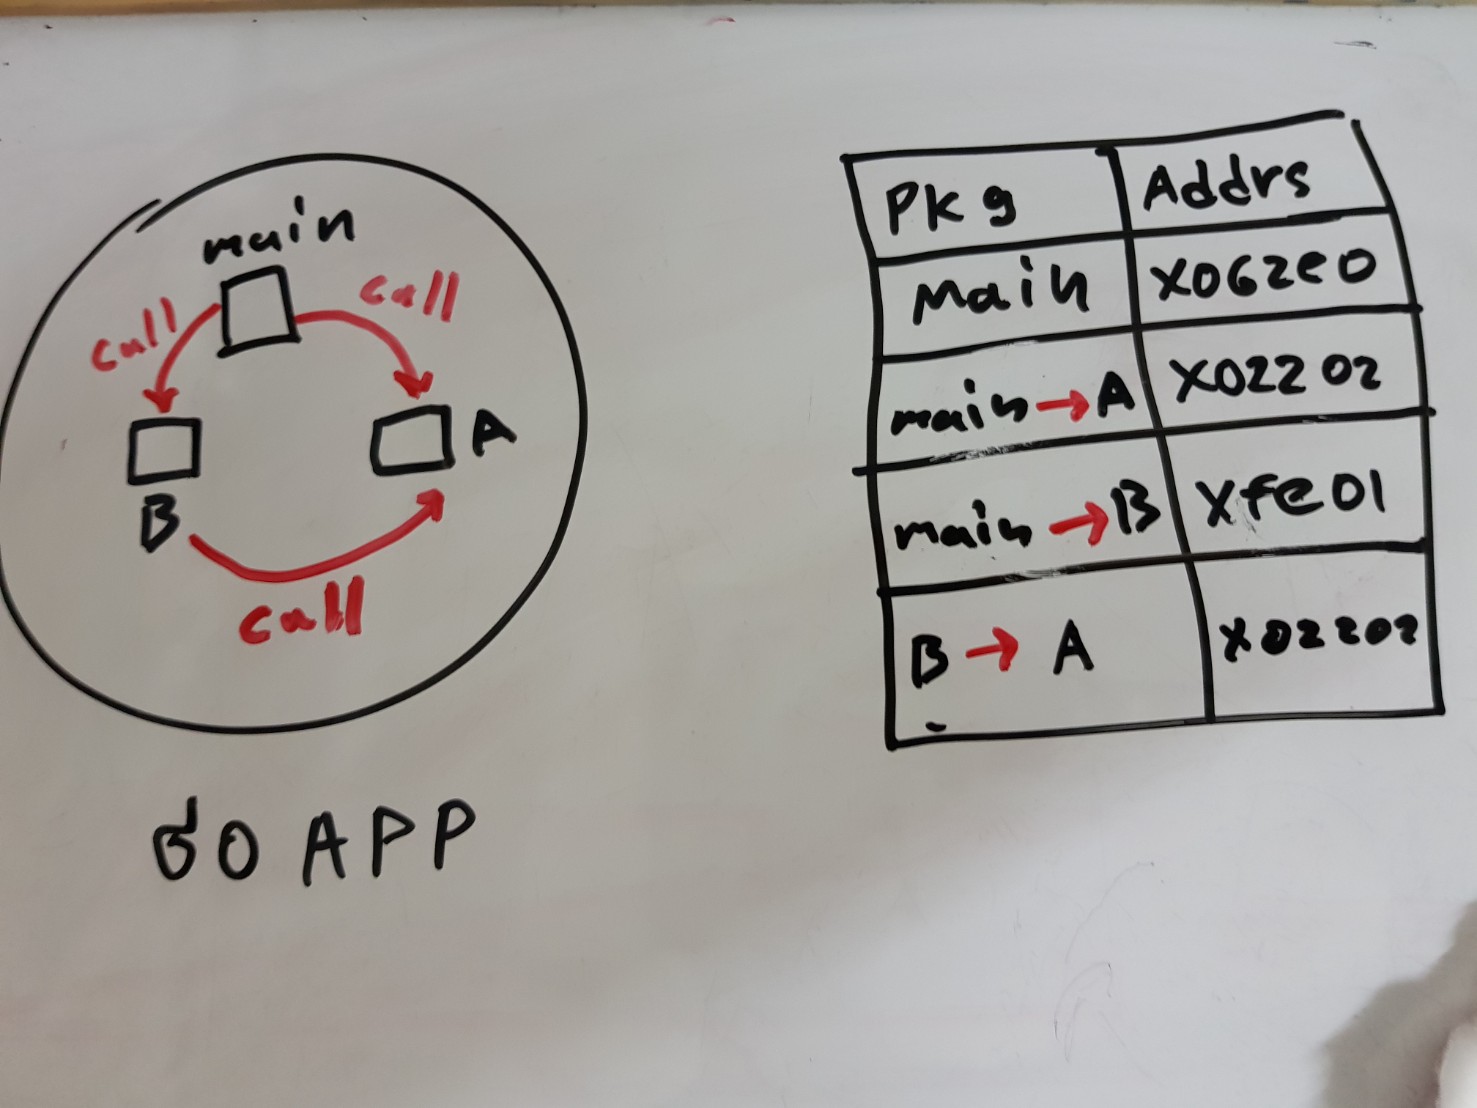 main
call
call
B
A
call
GO APP
PKg Addrs
Main X062e0
main → A X02202
main → B Xfe01
B → A X02202